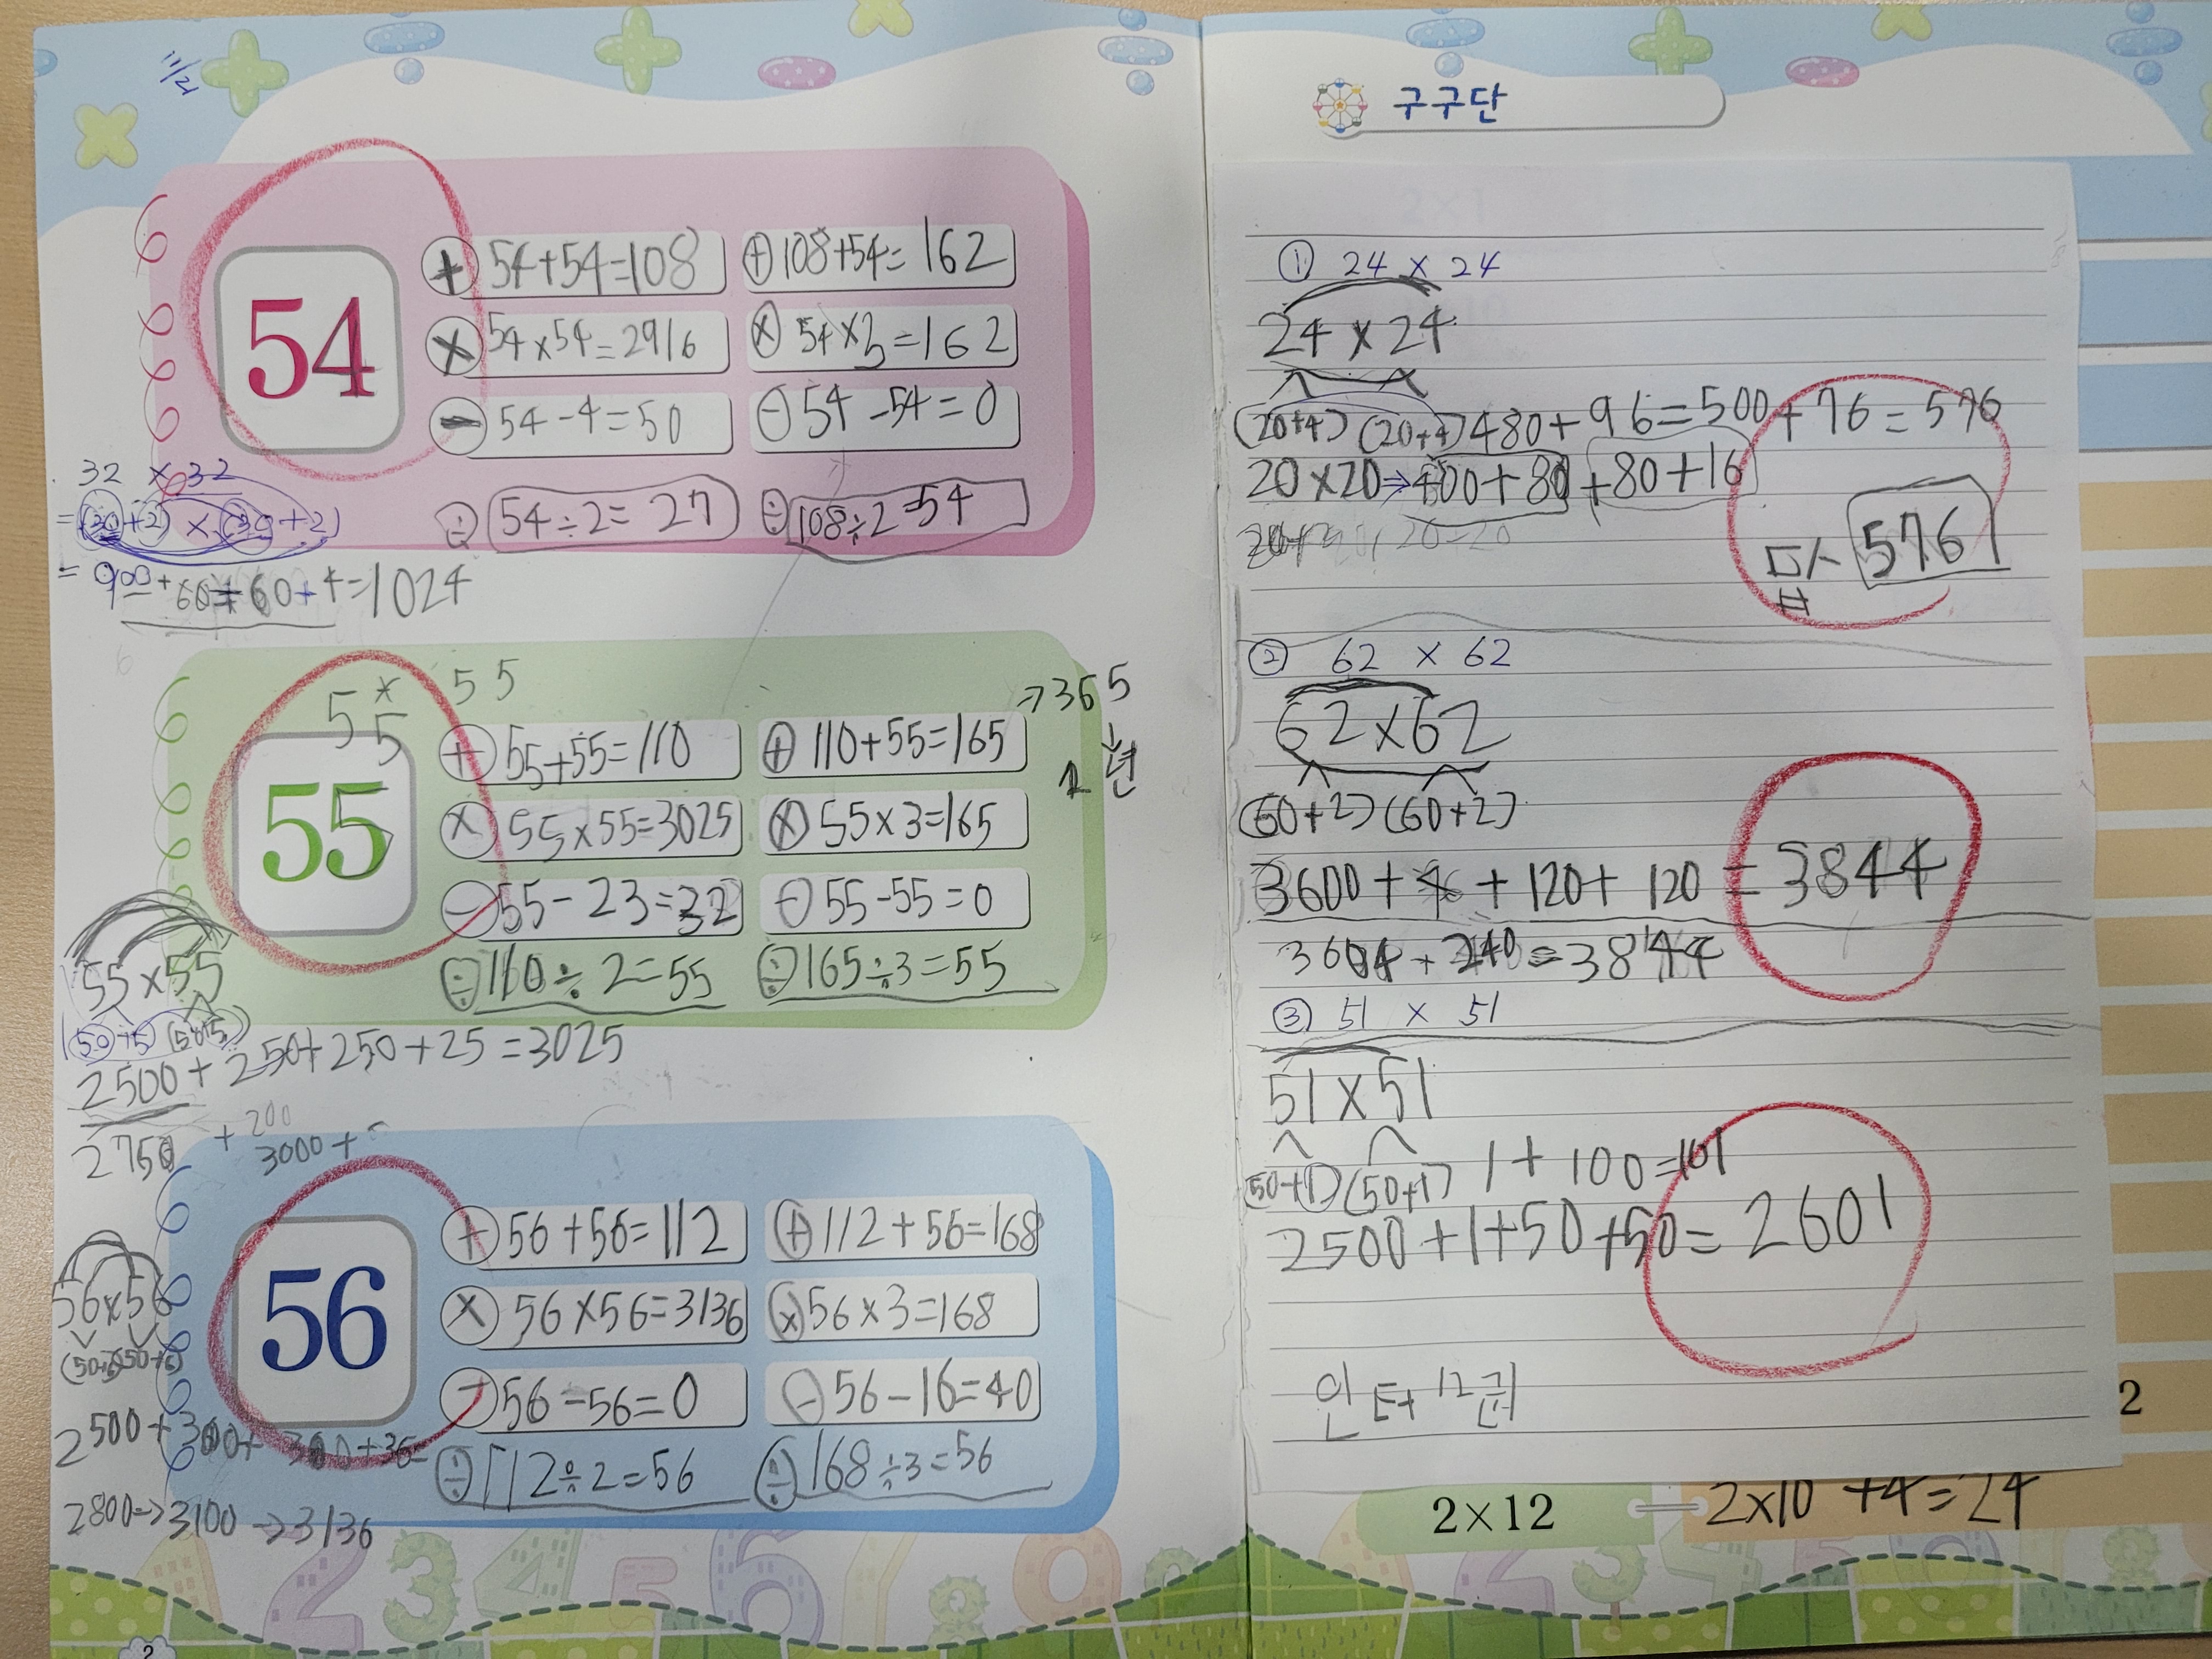 11/21
54
+ 54+54=108
+ 108+54=162
× 54×54=2916
× 54×3=162
- 54-4=50
- 54-54=0
÷ 54÷2=27
÷ 108÷2=54
32 × 32
=(30+2)×(30+2)
=900+60+60+4=1024
5 × 5
5 5
55
+ 55+55=110
+ 110+55=165
→365
↓
1년
× 55×55=3025
× 55×3=165
- 55-23=32
- 55-55=0
÷ 110÷2=55
÷ 165÷3=55
55×55
(50+5)(50+5)
2500+250+250+25=3025
2750 + 200
3000+
56
+ 56+56=112
+ 112+56=168
× 56×56=3136
× 56×3=168
- 56-56=0
- 56-16=40
÷ 112÷2=56
÷ 168÷3=56
56×56
(50+6)(50+6)
2500+300+300+36=
2800→3100→3136
2
구구단
① 24 × 24
24×24
(20+4)(20+4) 480+96=500+76=576
20×20→400+80+80+16
답 576
② 62 × 62
62×62
(60+2)(60+2)
3600+4+120+120=3844
3604+240=3844
③ 51 × 51
51×51
(50+1)(50+1) 1+100=101
2500+1+50+50=2601
12권
2
2×12
2×10+4=24